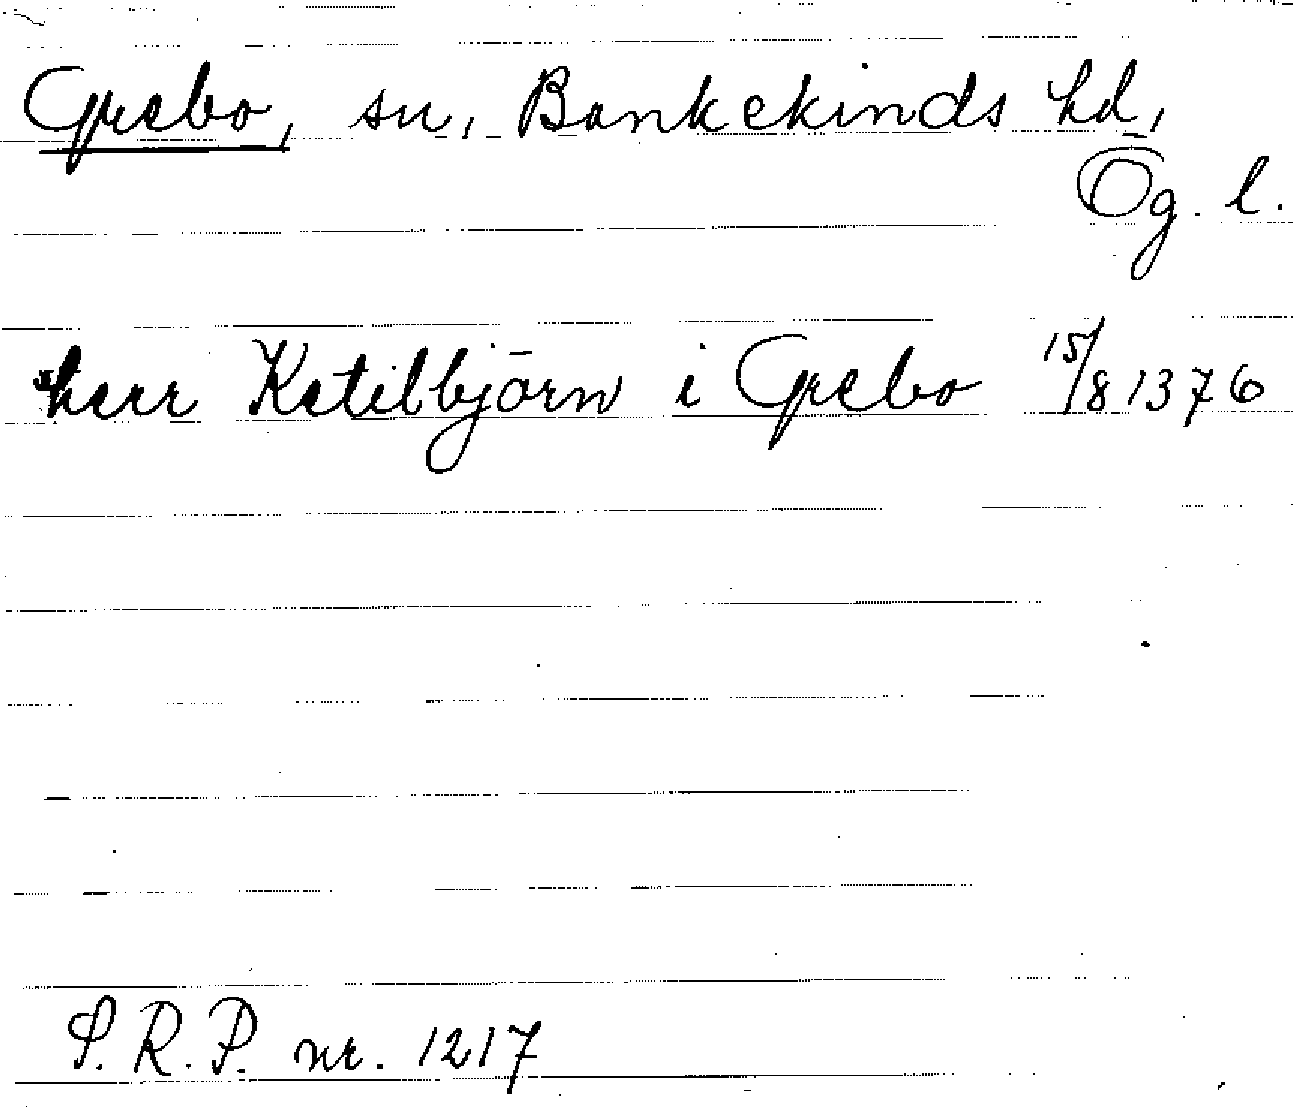 Grebo, sn, Bankekinds hd,
Ög. l.
herr Ketilbjörn i Grebo 15/8 1376
S.R.P. nr. 1217